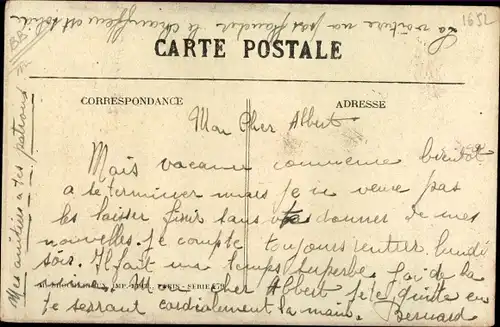 La voiture na pas flancher le chauffeur est solide
BB.
1652
CARTE POSTALE
CORRESPONDANCE
ADRESSE
Mon Cher Albert
Mais vacance commence bientot
a se terminer mais je ne veux pas
les laisser finir sans te donner de mes
nouvelles. je compte toujours rentrer lundi
soir. Il fait un temps superbe. de la
cher Albert je te quitte en
te serrant cordialement la main. Bernard
Mes amitiées a tes patrons